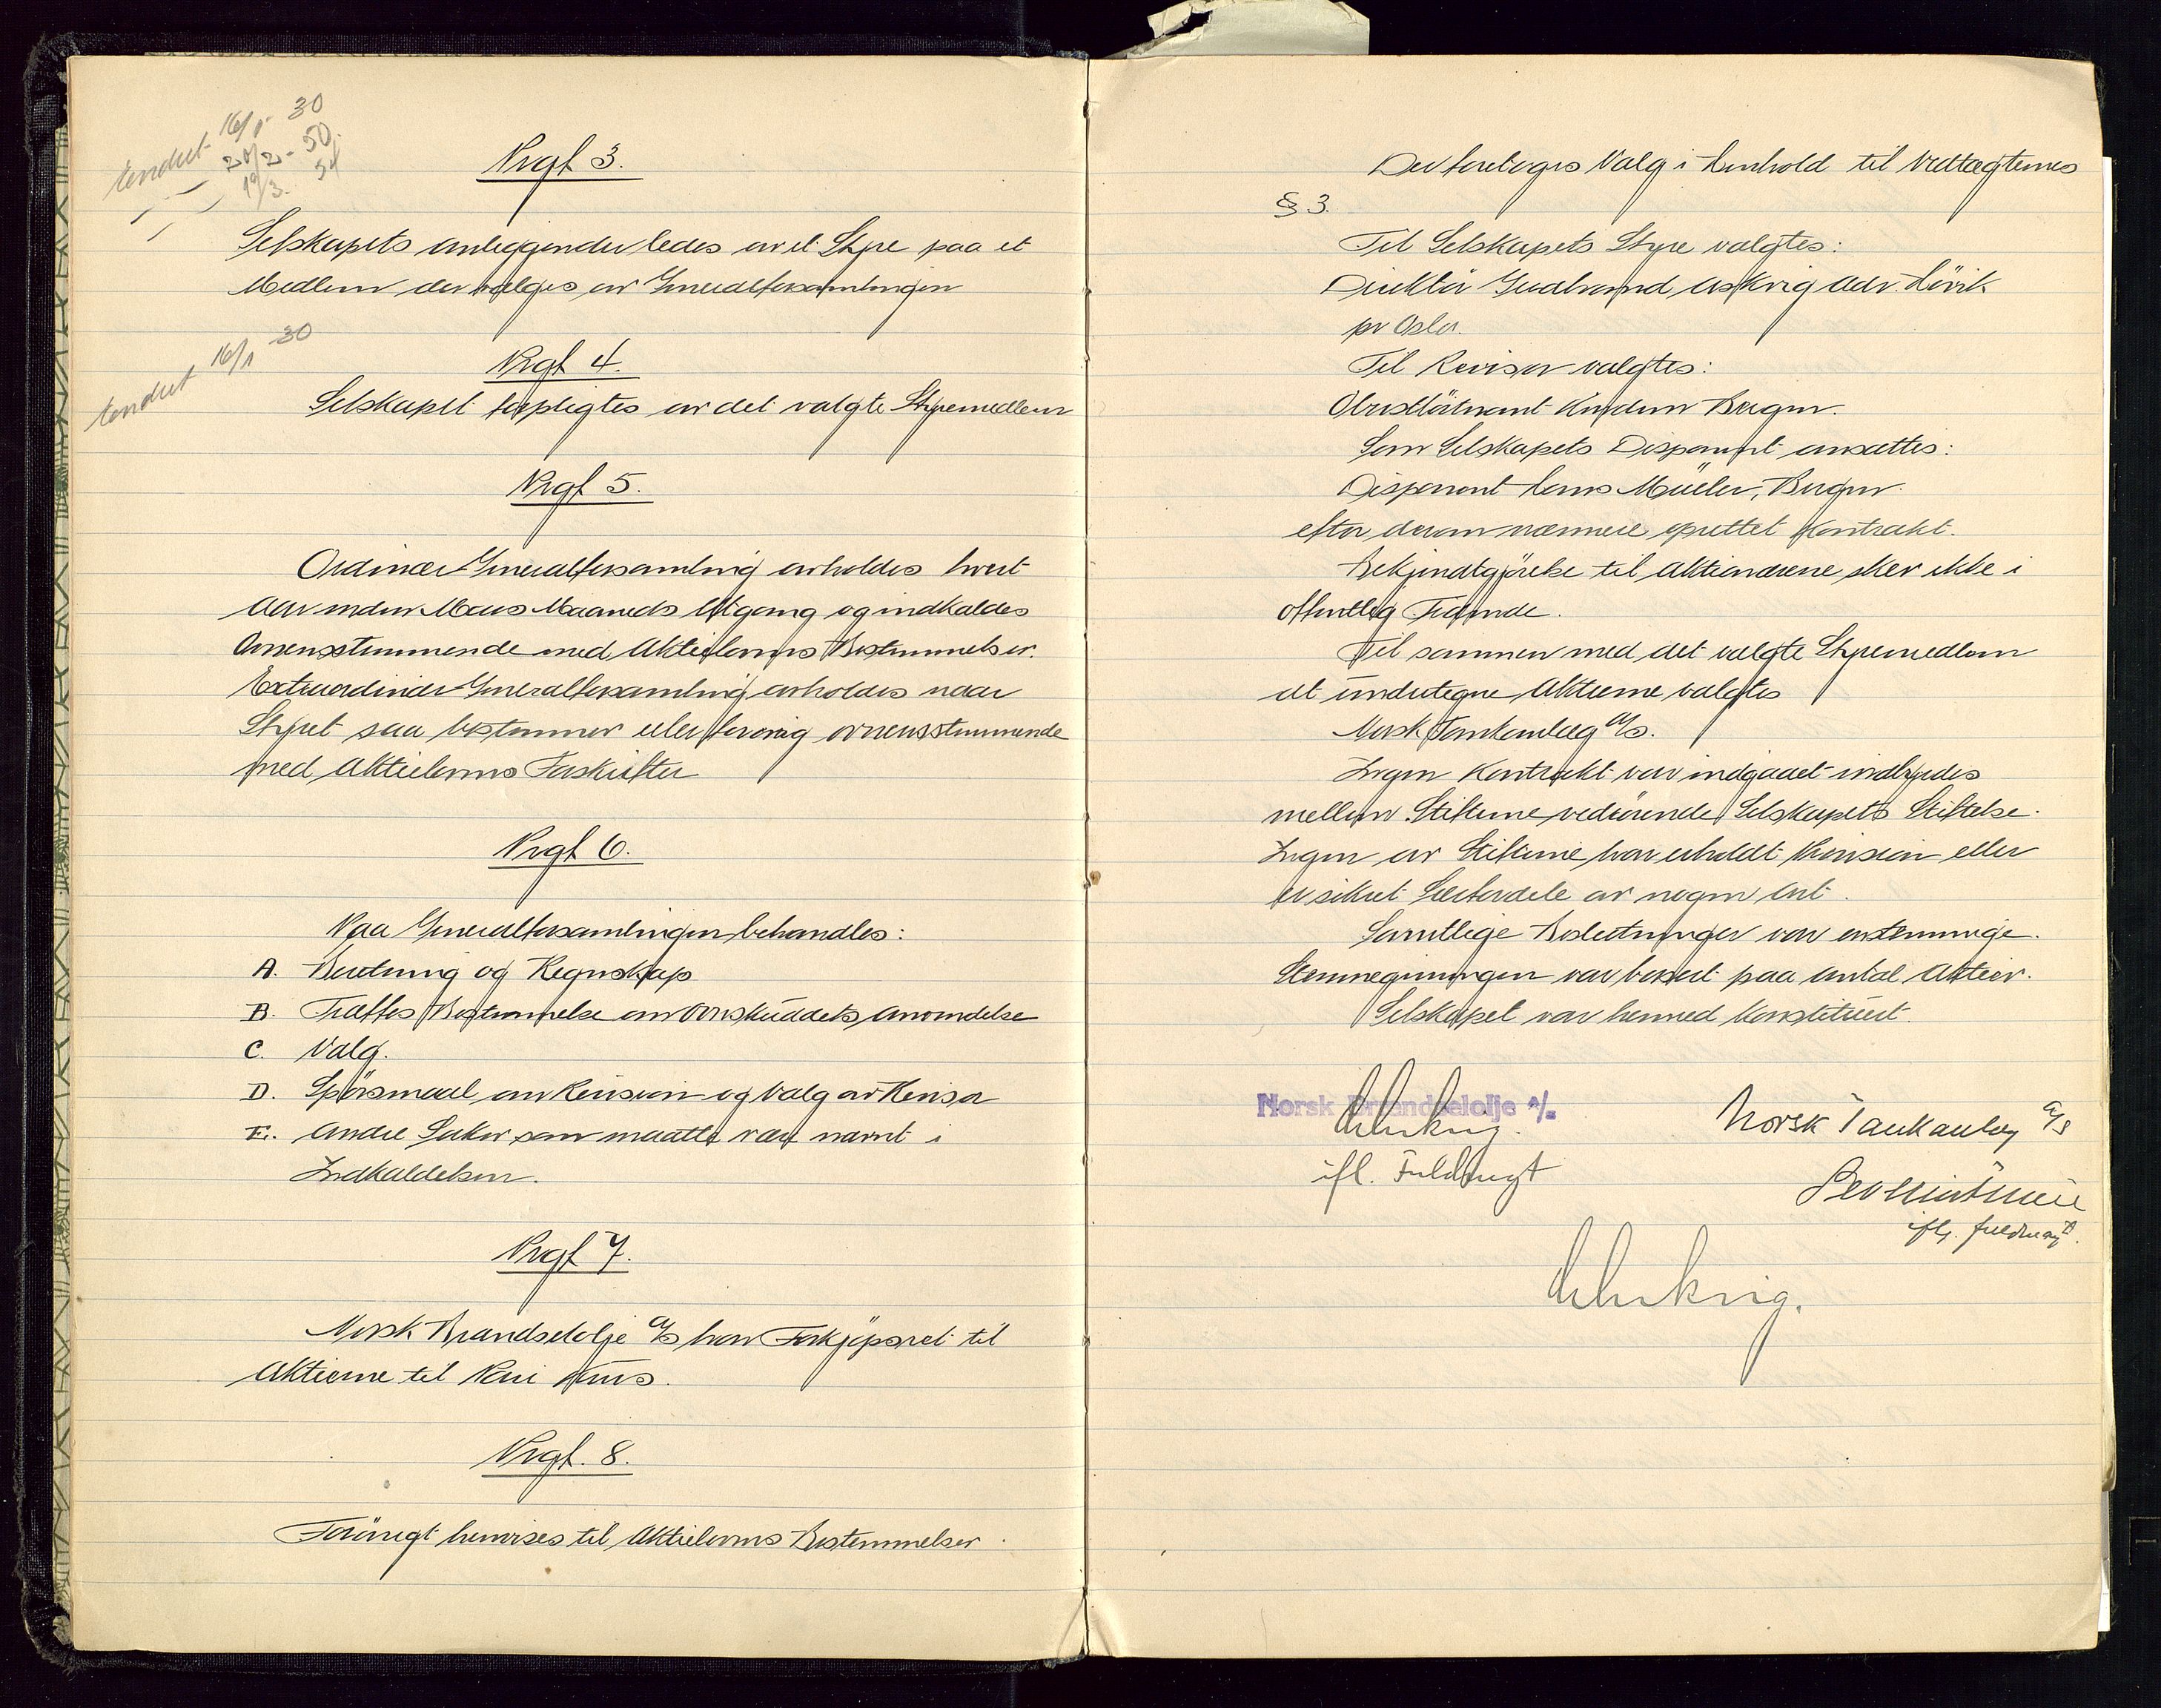 endret 16/1 30
20/2 - 50
19/3. 54
Prgf 3.
Selskapets anliggender ledes av et Styre paa et
Medlem der vælges av Generalforsamlingen
endret 16/1 30
Prgf 4.
Selskapet forpligtes av det valgte Styremedlem
Prgf 5.
Ordinær Generalforsamling avholdes hvert
Aar inden Mars Maaneds Utgang og indkaldes
overensstemmende med Aktielovens Bestemmelser.
Extraordinær Generalforsamling avholdes naar
Styret saa bestemmer eller forøvrig overensstemmende
med Aktielovens Forskrifter
Prgf 6.
Paa Generalforsamlingen behandles:
A. Beretning og Regnskap
B. Træffes Bestemmelse om Overskuddets Anvendelse
C. Valg.
D. Spörsmaal om Revision og Valg av Revisor
E. Andre Saker som maatte være nævnt i
Indkaldelsen.
Prgf 7.
Norsk Brændselolje A/S har Forkjöpsret til
Aktierne til Pari Kurs.
Prgf. 8.
Forövrigt henvises til Aktielovens Bestemmelser
Der foretoges Valg i Henhold til Vedtægternes
§ 3.
Til Selskapets Styre valgtes:
Direktör Gudbrand Askvig adr. Hövik
pr Oslo.
Til Revisor valgtes:
Oberstlöitnant Bergen.
Som Selskapets Disponent ansattes:
Disponent Hans Müller, Bergen.
efter derom nærmere oprettet Kontrakt.
Bekjendtgjörelse til Aktionærerne sker ikke i
offentlig Tidende.
Til sammen med det valgte Styremedlem
at undertegne Aktierne valgtes
Norsk Tankanlæg A/S.
Ingen Kontrakt var indgaaet indbyrdes
mellem Stifterne vedrörende Selskapets Stiftelse.
Ingen av Stifterne har erholdt Provision eller
er sikret Særfordele av nogen Art.
Samtlige Beslutninger var enstemmige.
Stemmegivningen var basert paa Antal Aktier.
Selskapet var hermed konstituert.
Norsk Brændselolje A/S
Askvig.
ifl. Fuldmagt
Norsk Tankanlæg A/S
ifl. fuldmagt.
Askvig.